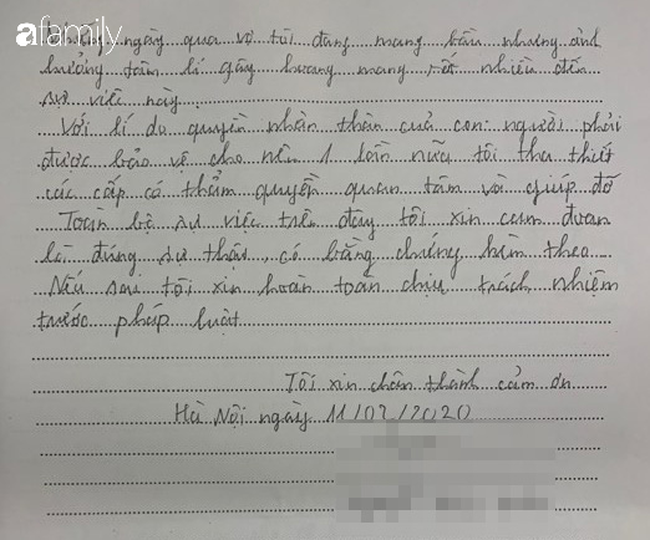 afamily
ngày qua vợ tôi đang mang bầu nhưng ảnh
hưởng tâm lí gây hoang mang rất nhiều đến
sự việc này
Với lí do quyền nhân thân của con người phải
được bảo vệ cho nên 1 lần nữa tôi tha thiết
các cấp có thẩm quyền quan tâm và giúp đỡ
Toàn bộ sự việc trên đây tôi xin cam đoan
là đúng sự thật, có bằng chứng kèm theo
Nếu sai tôi xin hoàn toàn chịu trách nhiệm
trước pháp luật
Tôi xin chân thành cảm ơn
Hà Nội ngày 11/02/2020